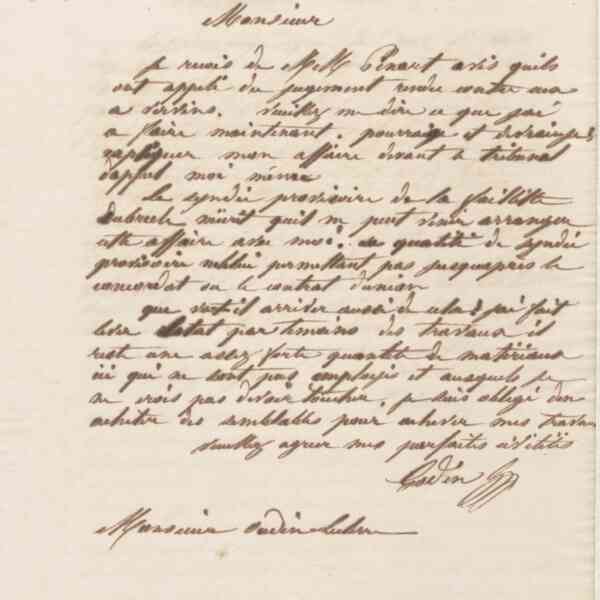 Monsieur
je reçois de MM Pinart avis quils
ont appelé du jugement rendu contre eux
a vervins. veuillez me dire ce que jai
a faire maintenant. pourrai je et devrai je
expliquer mon affaire devant le tribunal
dappel moi même
Le syndic provisoire de la faillite
m'ecrit quil ne peut venir arranger
cette affaire avec moi. sa qualité de syndic
provisoire ne lui permettant pas jusquapres le
concordat ou le contrat dunion
que va t il arriver aussi de cela? jai fait
letat par temoins des travaux il
reste une assez forte quantité de matériaux
ici qui ne sont pas employés et auxquels je
ne crois pas devoir toucher. je suis obligé den
acheter des semblables pour achever mes travaux
veuillez agréer mes parfaites civilités
Godin
Monsieur oudin Leclere